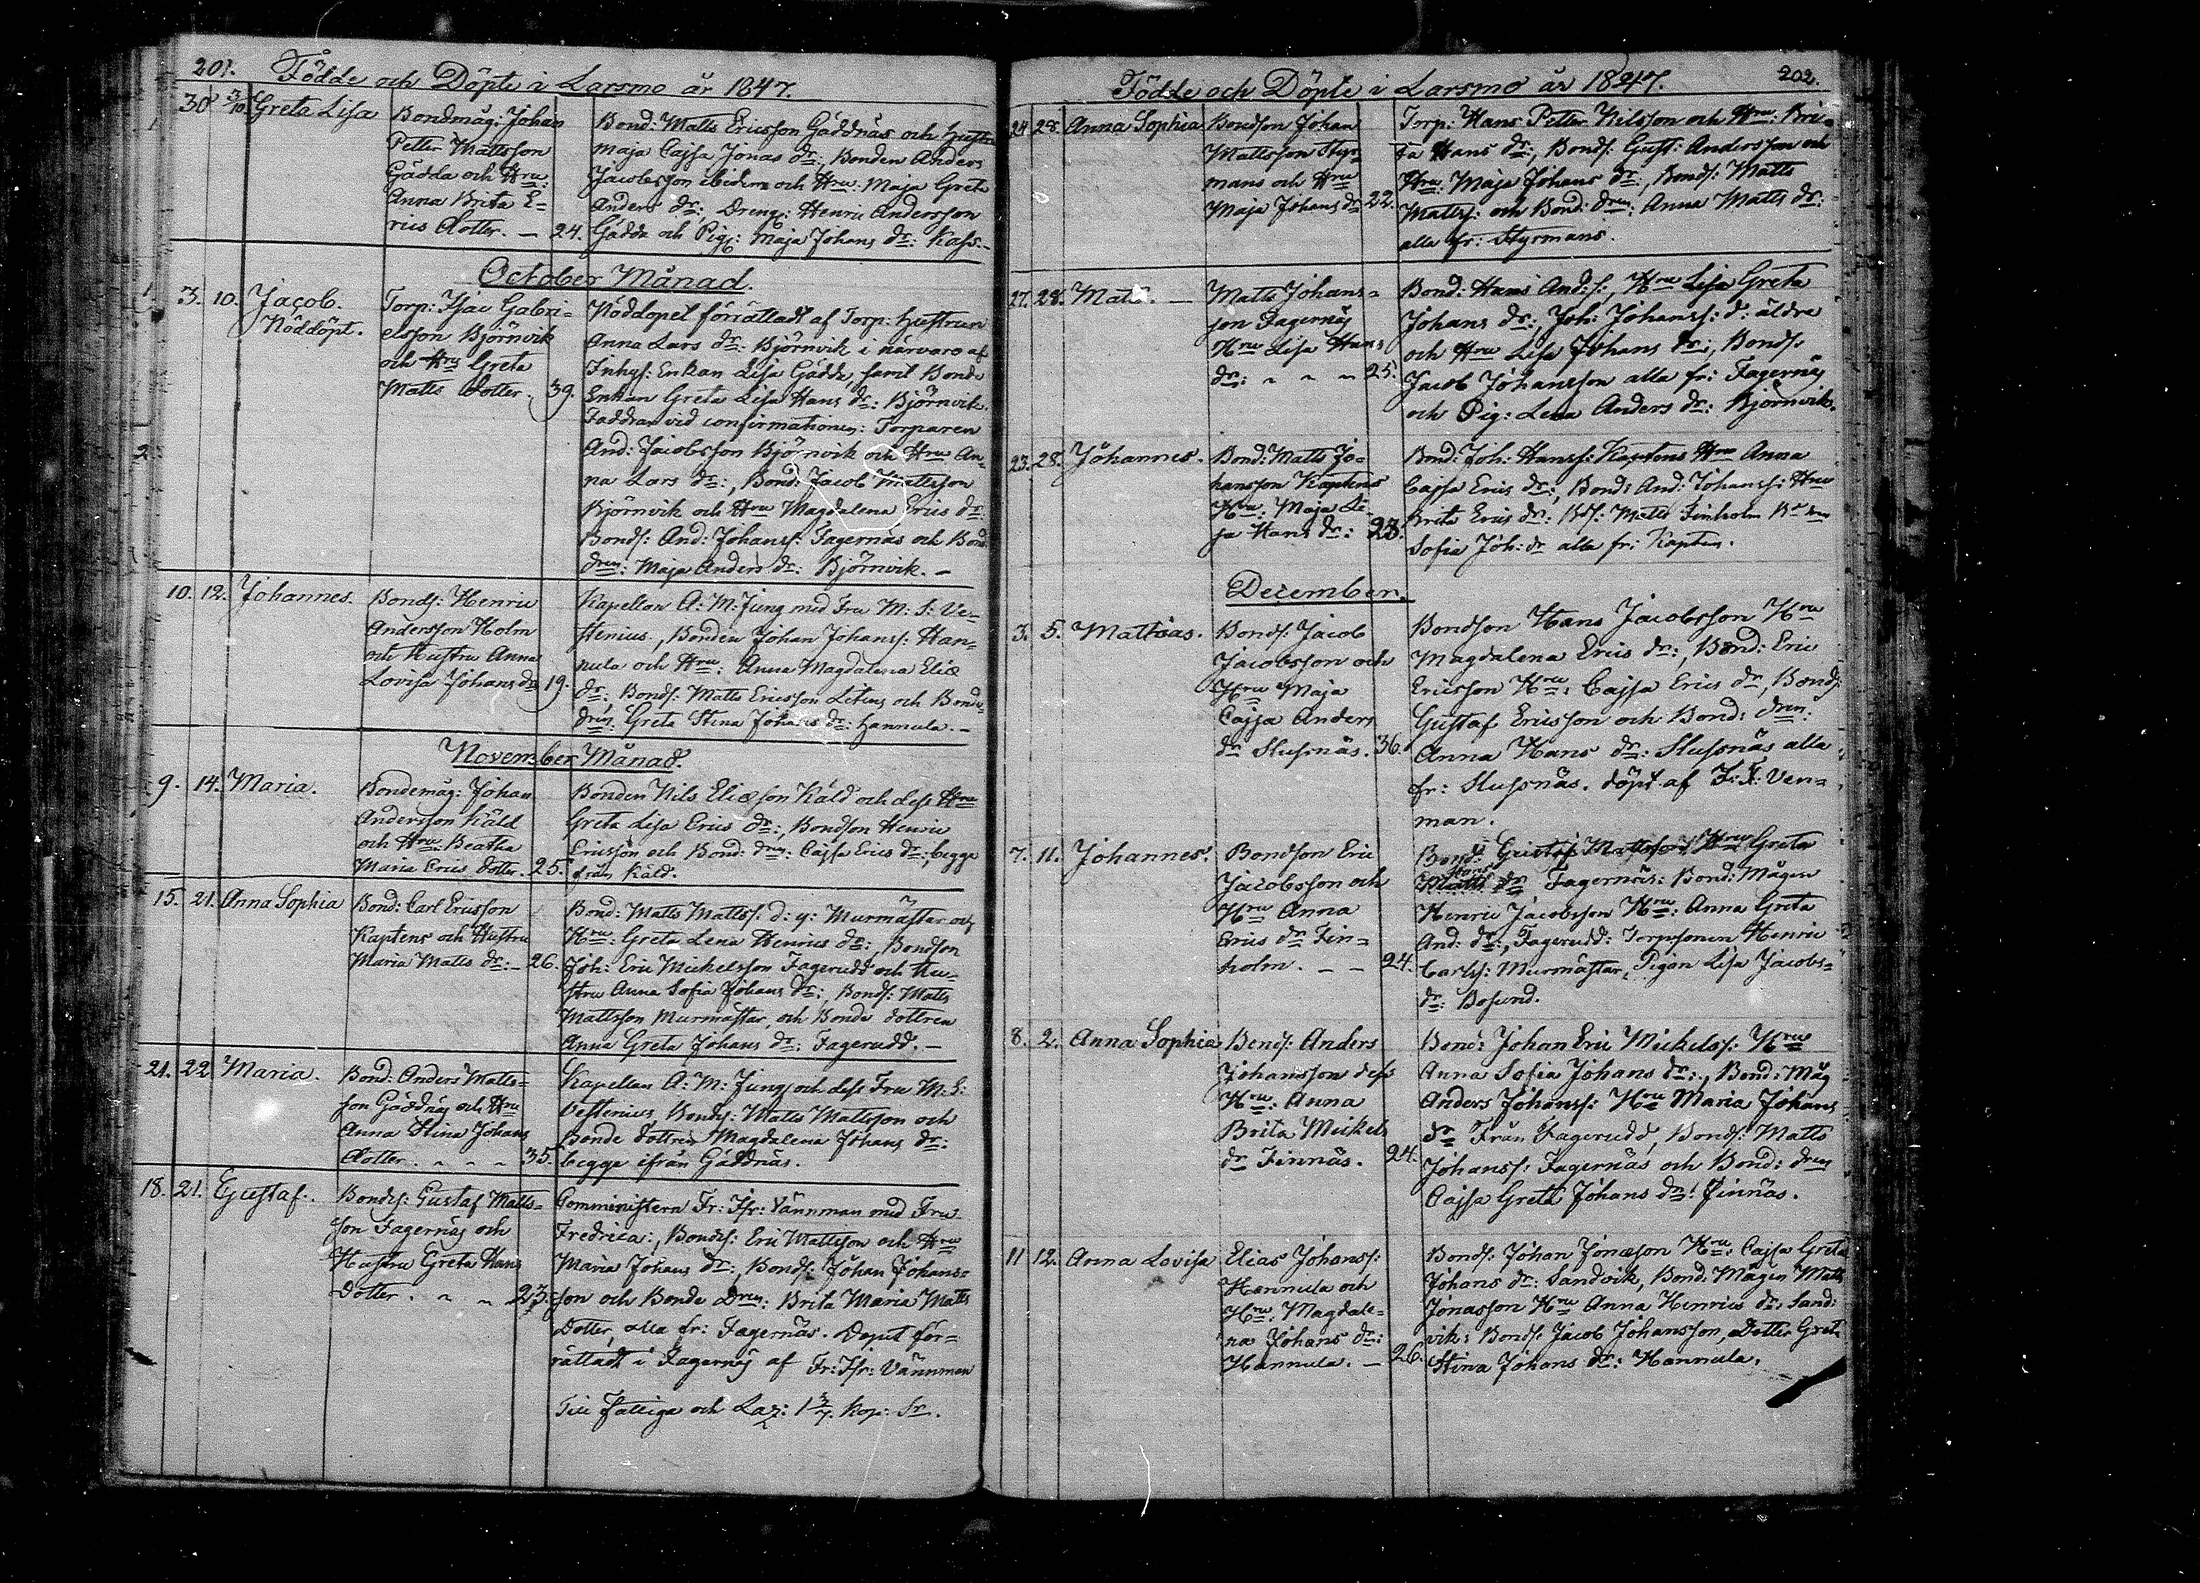 201. Födde och Döpte i Larsmo år 1847.
30 3/10 Greta Lisa
Bondmåg: Johan
Petter Mattsson
Gädda och Hru:
Anna Brita E-
rics Dotter. — 24.
Bond: Matts Ericsson Gäddnäs och Hustru
Maja Cajsa Jonas dr:, Bonden Anders
Jacobsson ibidem och Hru: Maja Greta
Anders dr:, Dreng: Henric Andersson
Gädda och Pig: Maja Johans dr: Kass.-
October Månad.
3. 10. Jacob.
Nöddöpt.
Torp: Isac Gabri-
elsson Björnvik
och Hru Greta
Matts Dotter. 39.
Nöddopet förrättadt af Torp: Hustrun
Anna Lars dr: Björnvik i närvaro af
Inhys: Enkan Lisa Gädda, samt Bonde
Enkan Greta Lisa Hans dr: Björnvik.
Faddrar vid confirmationen: Torparen
And: Jacobsson Björnvik och Hru An-
na Lars dr:, Bond: Jacob Mattsson
Björnvik och Hru Magdalena Erics dr:
Bonds: And: Johanss: Fagernäs och Bond:
dren: Maja Anders dr: Björnvik. —
10. 12. Johannes.
Bonds: Henric
Andersson Holm
och Hustru Anna
Lovisa Johans dr 19.
Kapellan A: M: Jung med Fru M: S: Ve-
stenius, Bonden Johan Johanss: Han-
nula och Hru: Anna Magdalena Eliæ
dr: Bonds: Matts Ericsson Letens och Bonde
dren: Greta Stina Johans dr: Hannula. —
November Månad.
9. 14. Maria.
Bondemåg: Johan
Andersson Käld
och Hru: Beatha
Maria Erics dotter. 25.
Bonden Nils Eliæson Käld och dess Hru
Greta Lisa Erics dr:, Bondson Henric
Ericsson och Bond: dren: Cajsa Erics dr: begge
från Käld.
15. 21. Anna Sophia
Bond: Carl Ericsson
Kaptens och Hustru
Maria Matts dr: — 26.
Bond: Matts Mattss: d: y: Murmästar och
Hru: Greta Lena Henrics dr:, Bondson
Joh: Eric Mickelsson Fagerudd och Hu-
stru Anna Sofia Johans dr:, Bonds: Matts
Mattsson Murmästar, och Bonde dottren
Anna Greta Johans dr: Fagerudd. —
21. 22 Maria.
Bond: Anders Matts-
son Gäddnäs och Hru
Anna Stina Johans
Dotter. 35.
Kapellan A: M: Jung och dess Fru M: S:
Vestenius, Bonds: Matts Mattsson och
Bonde dottren Magdalena Johans dr:
begge ifrån Gäddnäs.
18. 21. Gustaf.
Bonds: Gustaf Matts-
son Fagernäs och
Hustru Greta Hans
Dotter. 23.
Comministern Fr: Isr: Vännman med Fru
Fredrica:, Bonds: Eric Mattsson och Hru
Maria Johans dr:, Bonds: Johan Johans-
son och Bonde Dren: Brita Maria Matts
Dotter, alla fr: Fagernäs. Dopet för-
rättadt i Fagernäs af Fr: Isr: Vännman
Till Fattiga och Laz: Kop: Sr.
Födde och Döpte i Larsmo år 1847. 202.
24 28. Anna Sophia
Bondson Johan
Mattsson Styr-
mans och Hru
Maja Johans dr 22.
Torp: Hans Petter Nilsson och Hru: Bri-
ta Hans dr:, Bonds: Gust: Andersson och
Hru: Maja Johans dr:, Bonds: Matts
Mattss: och Bond: dren: Anna Matts dr:
alla fr: Styrmans.
27. 28. Matts. —
Matts Johans-
son Fagernäs
Hru Lisa Hans
dr: 25.
Bond: Hans And:s:, Hru Lisa Greta
Johans dr:, Joh: Johanss: d: äldre
och Hru Lisa Johans dr:, Bonds:
Jacob Johansson alla fr: Fagernäs
och Pig: Lena Anders dr: Björnvik.
23. 28. Johannes.
Bond: Matts Jo-
hansson Kaptens
Hru: Maja Li-
sa Hans dr: 23.
Bond: Joh: Hanss: Kaptens Hru Anna
Cajsa Erics dr:, Bonds And: Johanss: Hru
Brita Erics dr: Bds: Matts Finholm Bd dren
Sofia Joh: dr alla fr: Kapten.
December.
3. 5. Matthias.
Bonds: Jacob
Jacobsson och
Hru Maja
Cajsa Anders
dr Slussnäs. 36.
Bondson Hans Jacobsson Hru
Magdalena Erics dr:, Bond: Eric
Ericsson Hru: Cajsa Erics dr, Bonds:
Gustaf Ericsson och Bond: dren:
Anna Hans dr: Slussnäs alla
fr: Slussnäs. döpt af F: I: Ven-
man.
7. 11. Johannes.
Bondson Eric
Jacobsson och
Hru Anna
Erics dr Fin-
holm. — — 24.
Bond: Gustaf Mattsson Hru Greta
Hans
Matts dr Fagernäs: Bond: Mågen
Henric Jacobsson Hru: Anna Greta
And: dr:, Fagerudd: Torpsonen Henric
Carlss: Murmästar, Pigan Lisa Jacobs-
dr: Bosund.
8. 2. Anna Sophia
Bonds: Anders
Johansson dess
Hru: Anna
Brita Mickels
dr Finnäs. 24.
Bond: Johan Eric Mickelss: Hru
Anna Sofia Johans dr:, Bond: Måg
Anders Johanss: Hru Maria Johans
dr Från Fagerudd, Bonds: Matts
Johanss: Fagernäs och Bond: dren
Cajsa Greta Johans dr: Finnäs.
11 12. Anna Lovisa
Elias Johanss:
Hannula och
Hru: Magdale-
na Johans dr:
Hannula. — 26.
Bonds: Johan Jonæson Hru: Cajsa Greta
Johans dr: Sandvik, Bond: Mågen Matts
Jonasson Hru Anna Henrics dr: Sand-
vik: Bonds: Jacob Johansson, Dotter Greta
Stina Johans dr: Hannula.